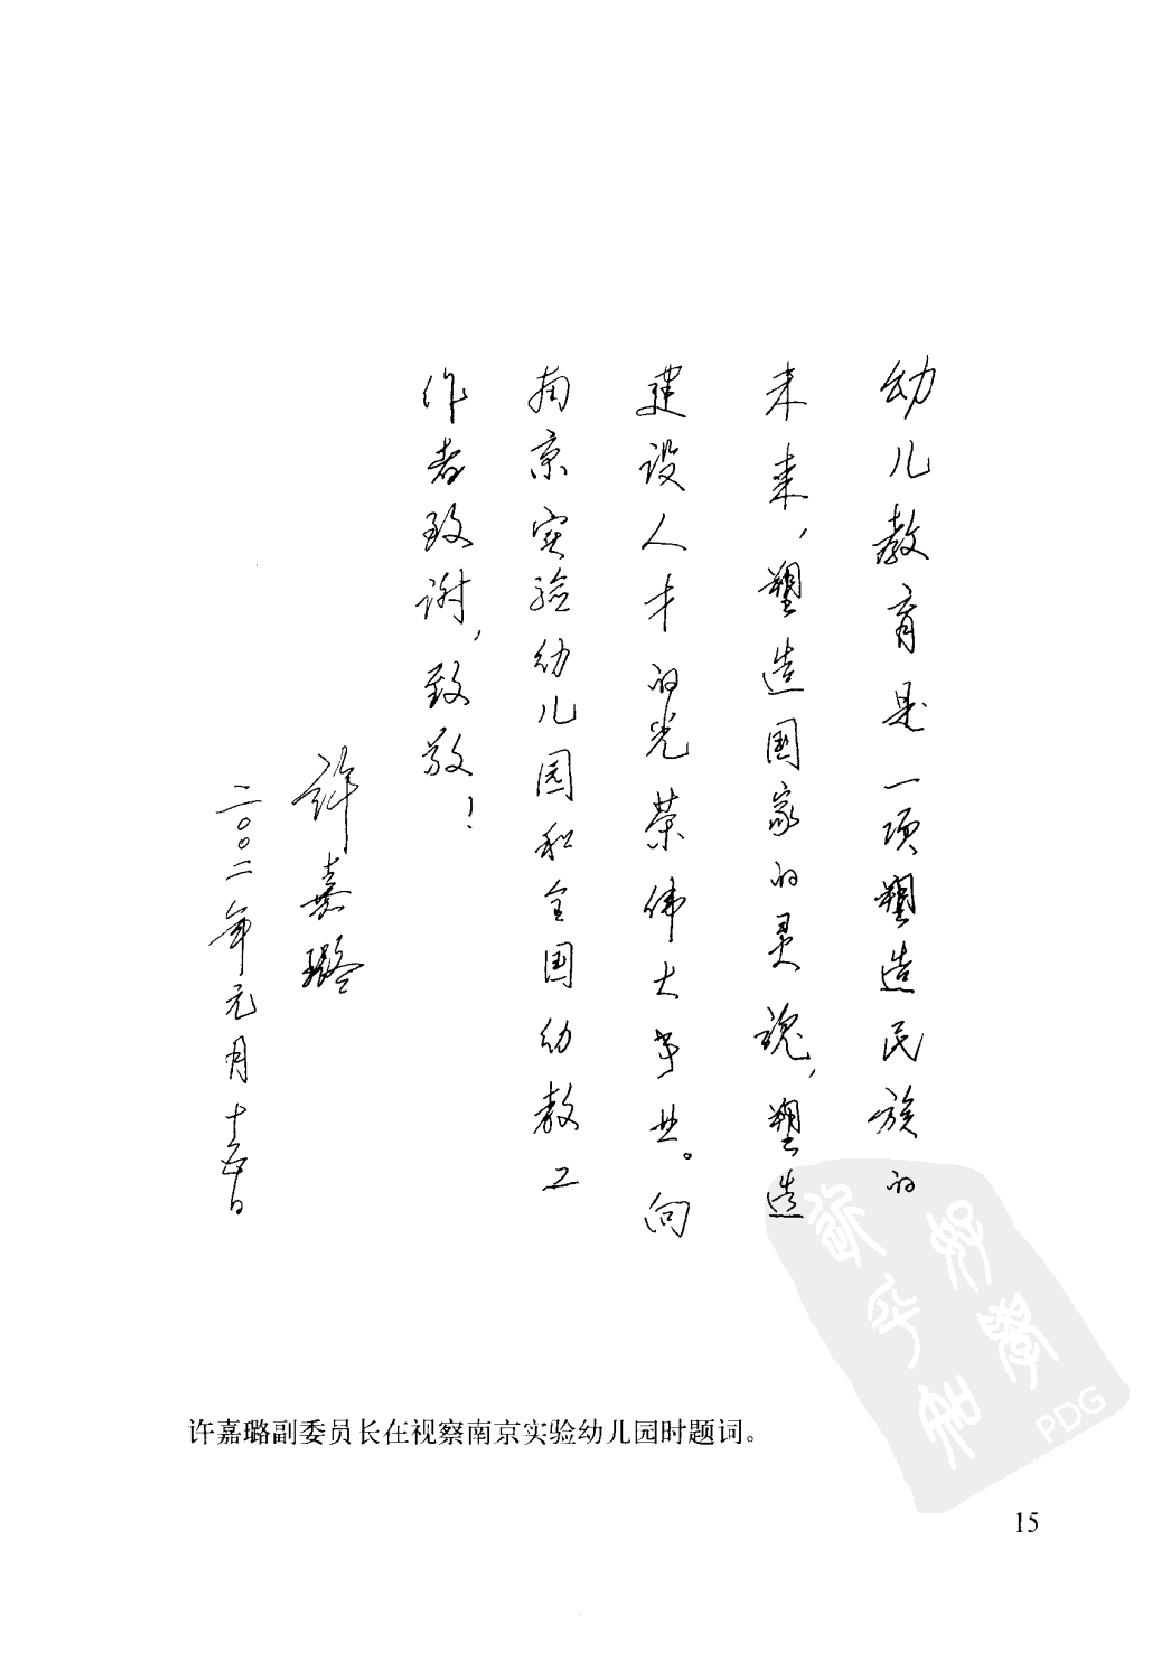 幼儿教育是一项塑造民族的
未来，塑造国家的灵魂，塑造
建设人才的光荣伟大事业。向
南京实验幼儿园和全国幼教工
作者致谢，致敬！
许嘉璐
二〇〇二年元月十五日
许嘉璐副委员长在视察南京实验幼儿园时题词。
PDG
15